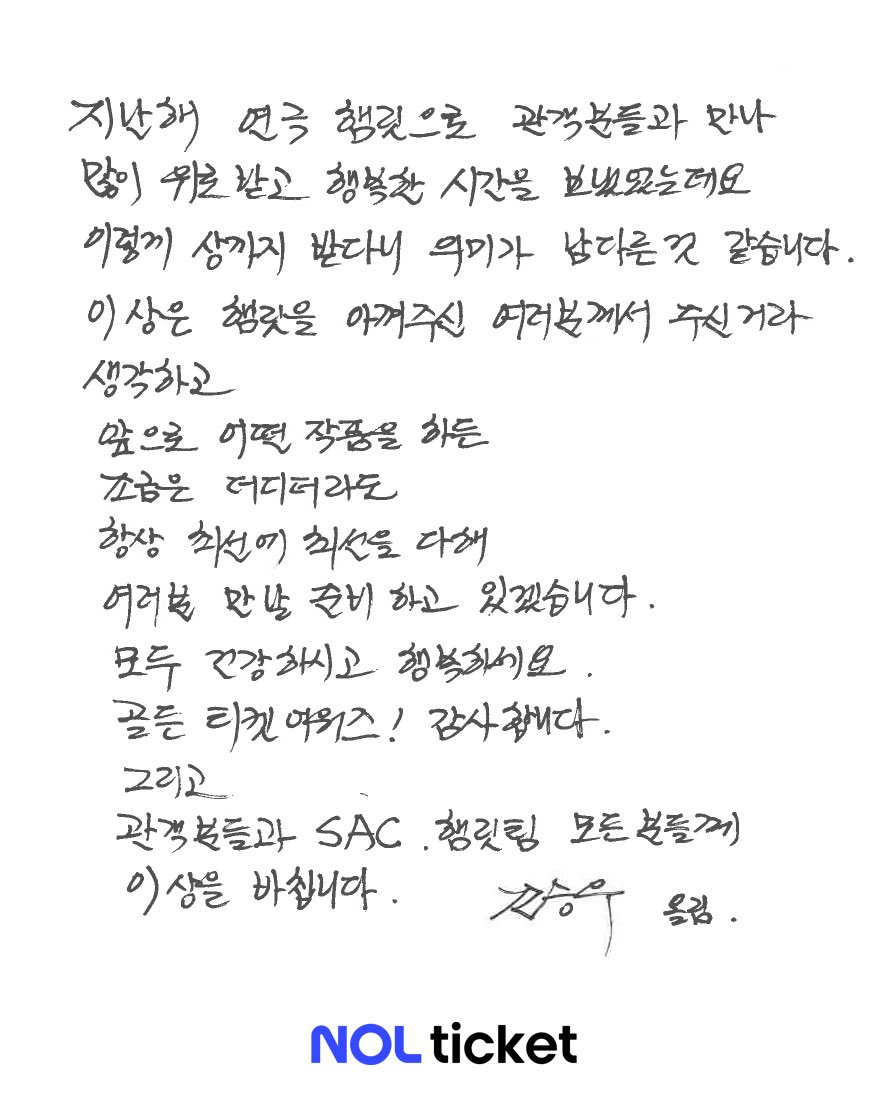 지난해 연극 햄릿으로 관객분들과 만나
많이 위로 받고 행복한 시간을 보냈었는데요
이렇게 상까지 받다니 의미가 남다른것 같습니다.
이 상은 햄릿을 아껴주신 여러분께서 주신거라
생각하고
앞으로 어떤 작품을 하든
조금은 더디더라도
항상 최선에 최선을 다해
여러분 만날 준비 하고 있겠습니다.
모두 건강하시고 행복하세요.
골든 티켓어워즈! 감사합니다.
그리고
관객분들과 SAC. 햄릿팀 모든분들께
이 상을 바칩니다.
승우 올림.
NOL ticket